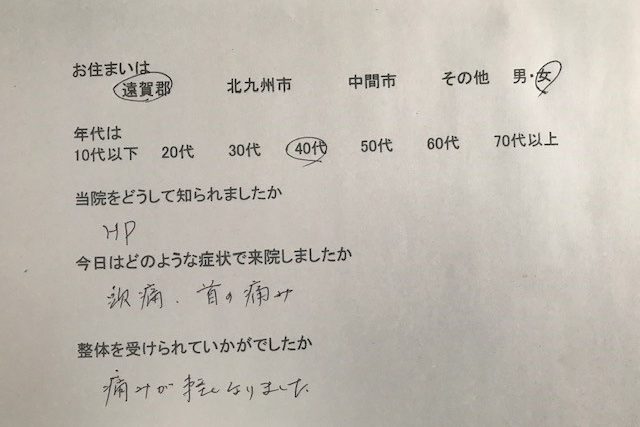 お住まいは
遠賀郡 北九州市 中間市 その他 男・女
年代は
10代以下 20代 30代 40代 50代 60代 70代以上
当院をどうして知られましたか
HP
今日はどのような症状で来院しましたか
頭痛、首の痛み
整体を受けられていかがでしたか
痛みが軽くなりました